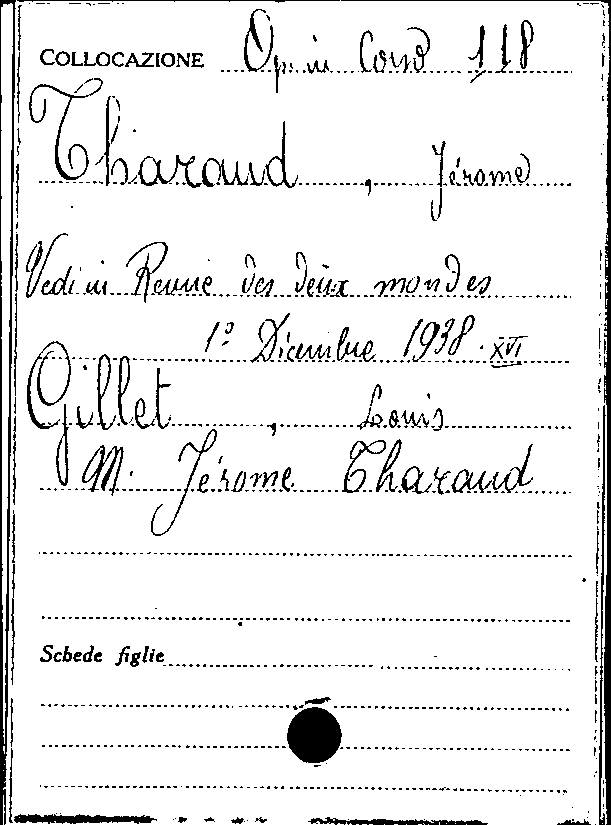 COLLOCAZIONE Op. in Corso 118
Tharaud, Jérome
Vedi in Revue des deux mondes
1º Dicembre 1938. XVI
Gillet, Louis
M. Jérome Tharaud
Schede figlie